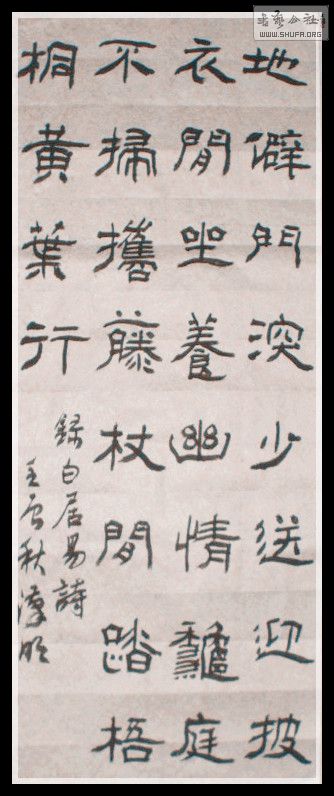 书艺公社
WWW.SHUFA.ORG
地僻門深少送迎披
衣閒坐養幽情龝庭
不掃攜藤杖閒踏梧
桐黃葉行
錄白居易詩
秋